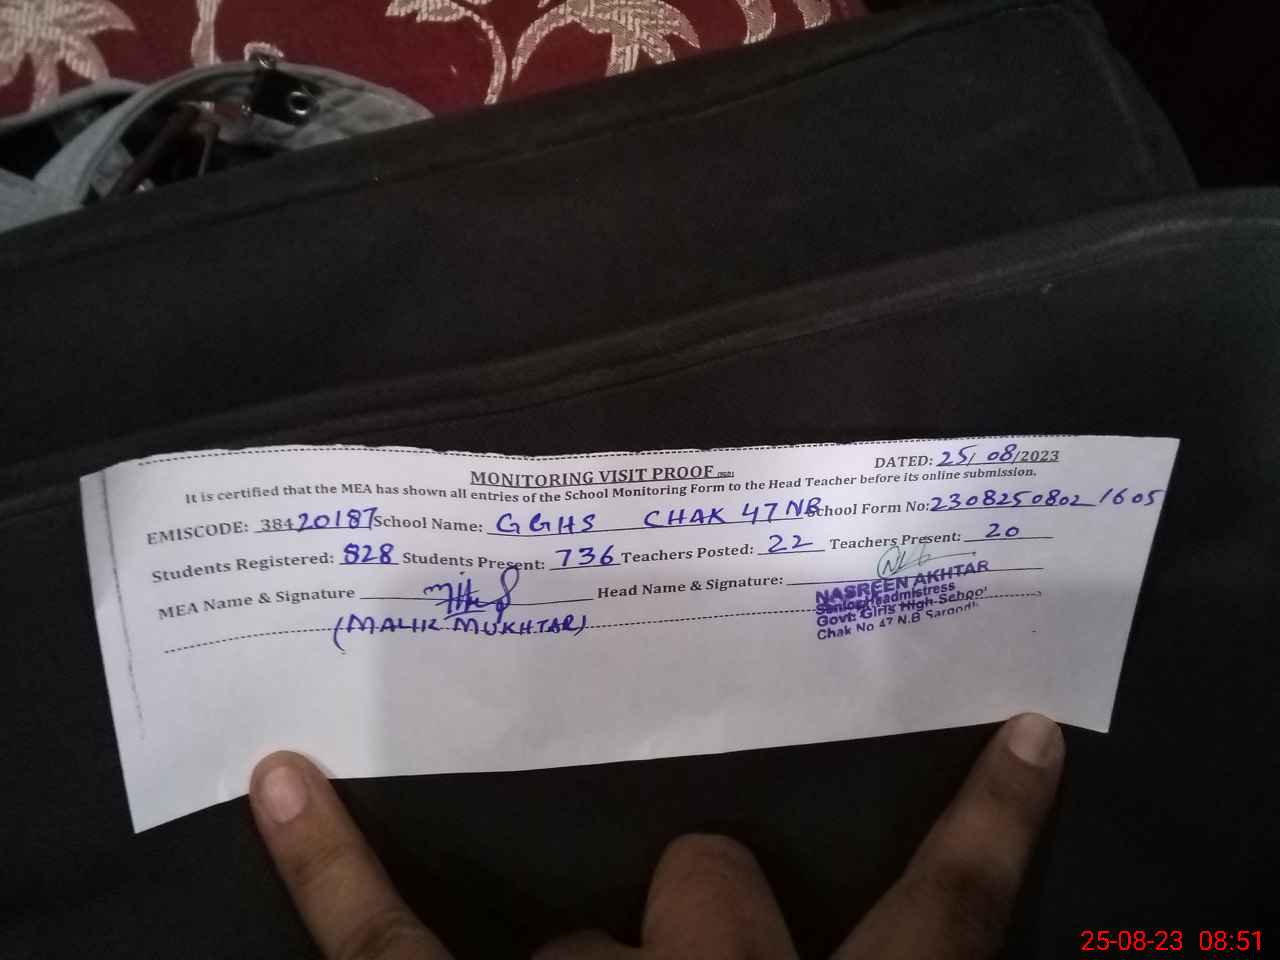 MONITORING VISIT PROOF
DATED: 25/08/2023
It is certified that the MEA has shown all entries of the School Monitoring Form to the Head Teacher before its online submission.
EMISCODE: 38420187 School Name: GGHS CHAK 47 NB School Form No: 2308250802 1605
Students Registered: 828 Students Present: 736 Teachers Posted: 22 Teachers Present: 20
MEA Name & Signature Head Name & Signature:
(MALIK MUKHTAR)
NASREEN AKHTAR
Senior Headmistress
Govt: Girls High School
Chak No 47 N.B Sargodh
25-08-23 08:51